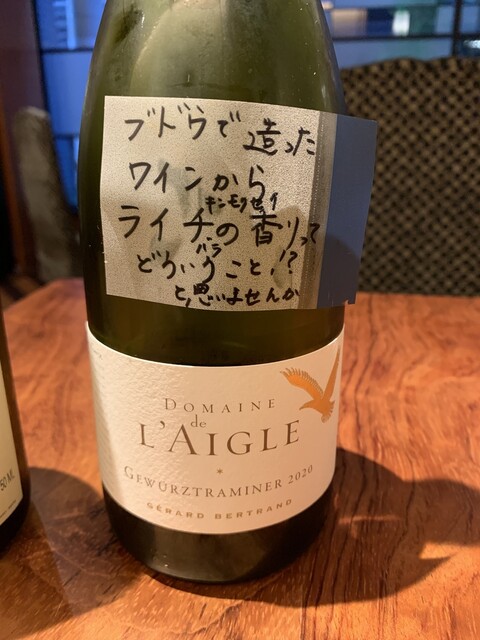 ブドウで造った
ワインから
キンモクセイ
ライチの香りって
バラ
どういうこと!?
と思いませんか
DOMAINE
de
L'AIGLE
*
GEWÜRZTRAMINER 2020
GÉRARD BERTRAND
50 ML